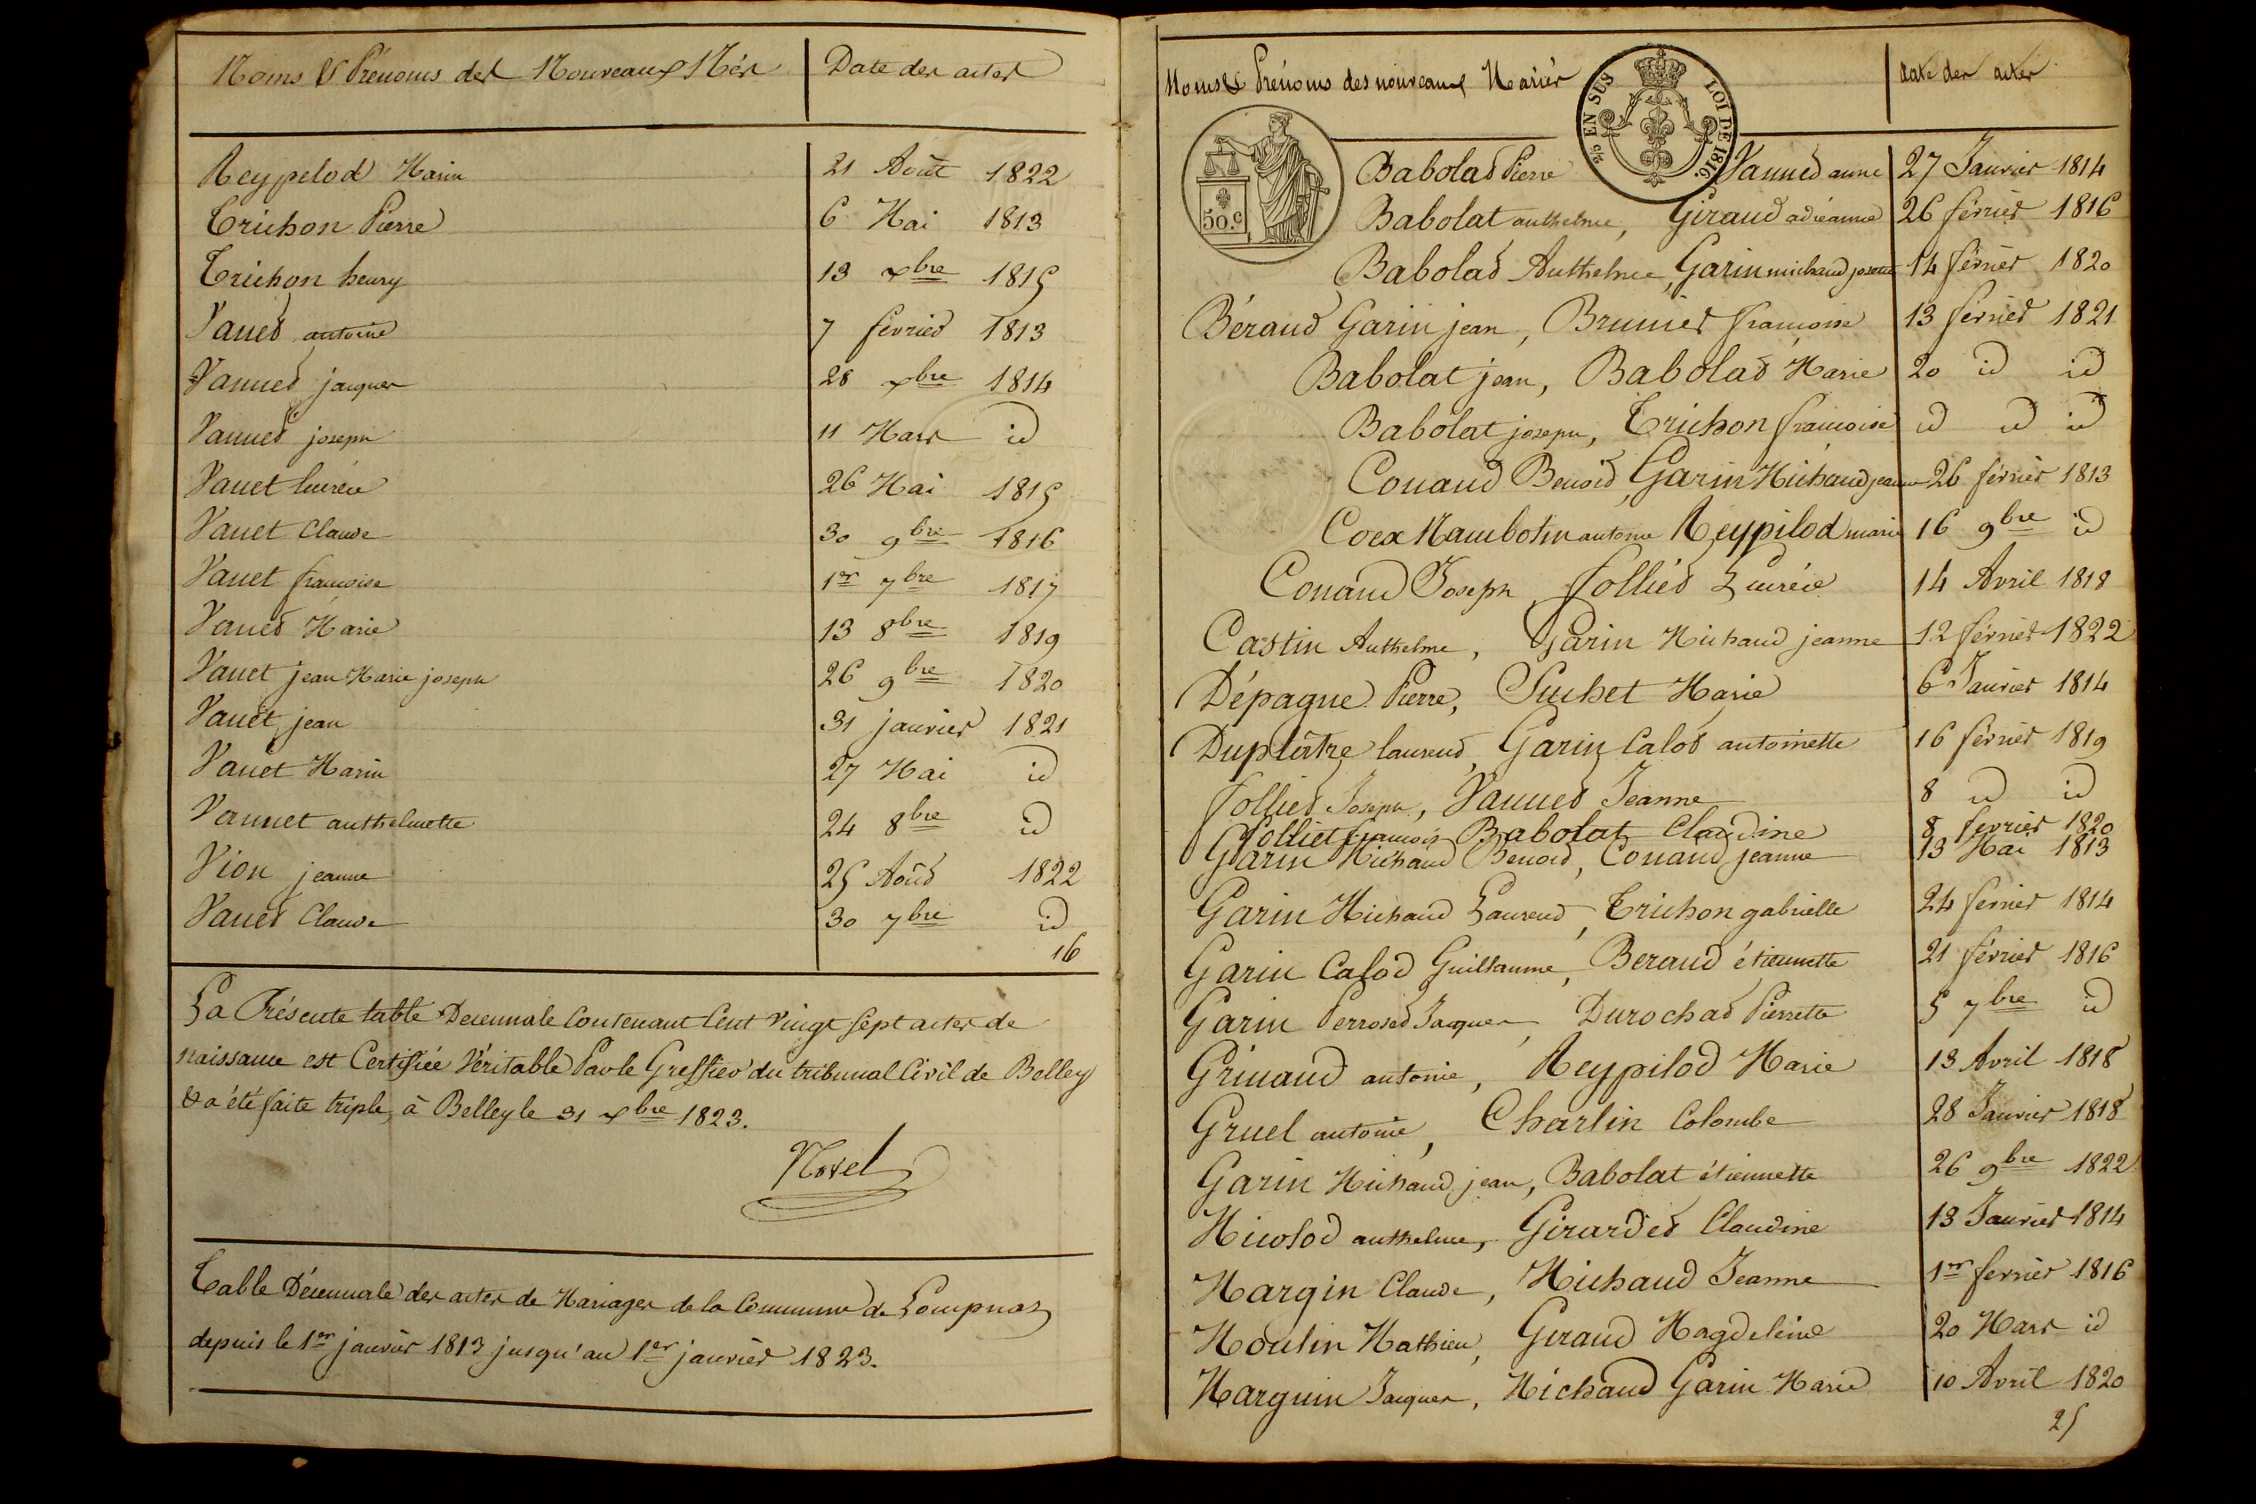 Noms & Prénoms des Nouveaux Nés Date des actes
Reypelod Marin 21 Août 1822
Trichon Pierre 6 Mai 1813
Trichon henry 13 xbre 1815
Vanet antoine 7 février 1813
Vannet jacques 28 xbre 1814
Vannet joseph 11 Mars id
Vanet lucréce 26 Mai 1815
Vanet Claude 30 9bre 1816
Vanet françoise 1er 7bre 1817
Vanet Marie 13 8bre 1819
Vanet jean Marie joseph 26 9bre 1820
Vanet jean 31 janvier 1821
Vanet Marin 27 Mai id
Vannet anthelmette 24 8bre id
Vion jeanne 25 Août 1822
Vanet Claude 30 7bre id
16
La Présente table Decennale Contenant Cent vingt sept actes de
naissance est Certifiée Véritable Par le Greffier du tribunal Civil de Belley
& a été faite triple, à Belley le 31 xbre 1823.
Novel
Table Décennale des actes de Mariages de la Commune de Lompnas
depuis le 1er janvier 1813 jusqu'au 1er janvier 1823.
Noms & Prénoms des nouveaux Mariés date des actes
2/0 EN SUS LOI DE 1816.
50.c
Babolat Pierre Vannet anne 27 Janvier 1814
Babolat anthelme, Giraud adréanne 26 février 1816
Babolat Anthelme, Garin michaud josette 14 février 1820
Béraud Garin jean, Brunier françoise 13 février 1821
Babolat jean, Babolat Marie 20 id id
Babolat joseph, Trichon françoise id id id
Conand Benoid, Garin Michaud jeanne 26 février 1813
Coex Nambotin antoine Reypilod marie 16 9bre id
Conand Joseph Jolliet Lucréce 14 Avril 1818
Castin Anthelme, Garin Michaud jeanne 12 février 1822
Dépagne Pierre, Suchet Marie 6 Janvier 1814
Duplâtre laurend, Garin Calod antoinette 16 février 1819
Jolliet Joseph, Vannet Jeanne 8 id id
Jolliet françois Babolat Claudine 8 fevrier 1820
Garin Michaud Benoid, Conand jeanne 13 Mai 1813
Garin Michaud Laurend, Trichon gabrielle 24 fevrier 1814
Garin Calod Guillaume, Beraud étiennette 21 février 1816
Garin Perrosed Jacques, Durochad Pierrette 5 7bre id
Grinand antoine, Reypilod Marie 13 Avril 1818
Gruel antoine, Charlin Colombe 28 Janvier 1818
Garin Michaud jean, Babolat étiennette 26 9bre 1822
Micolod anthelme, Girardet Claudine 13 Janvier 1814
Margin Claude, Michaud Jeanne 1er fevrier 1816
Moulin Mathieu, Giraud Magdeleine 20 Mars id
Marguin Jacques, Michaud Garin Marie 10 Avril 1820
25